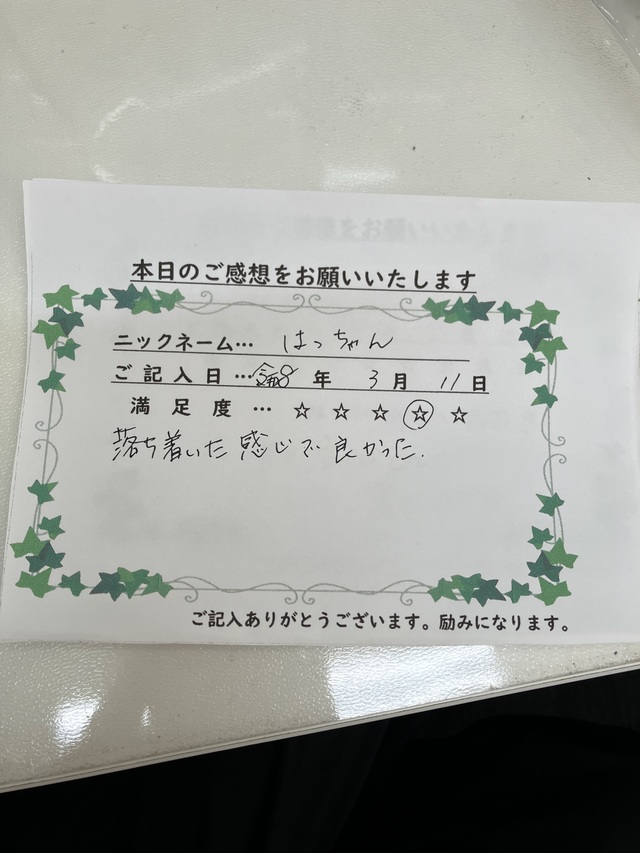 本日のご感想をお願いいたします
ニックネーム… はっちゃん
ご記入日…令和8年 3月 11日
満足度…☆ ☆ ☆ ☆ ☆
落ち着いた感じで良かった.
ご記入ありがとうございます。励みになります。